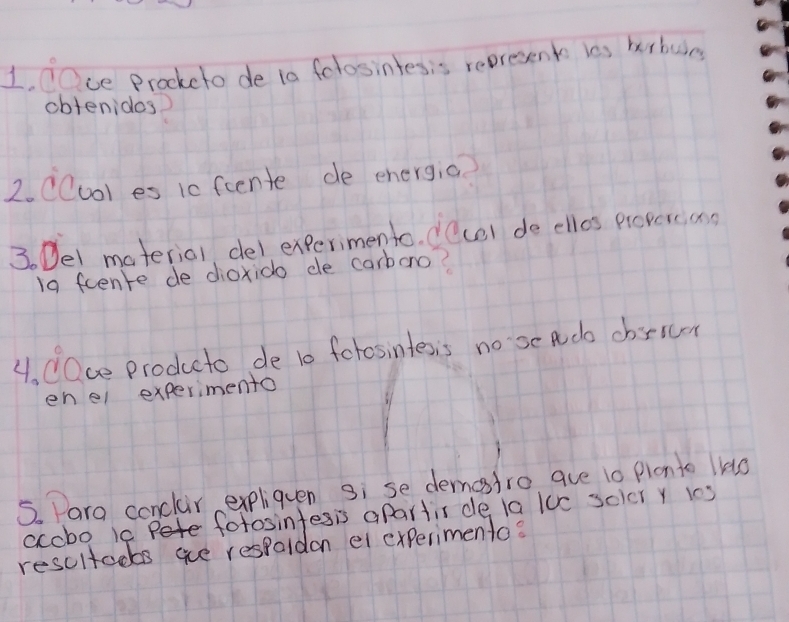 1. ¿Que Producto de la fotosintesis represent las burbujas
obtenidas?
2. ¿Cual es la fuente de energia?
3. Del material del experimento. ¿Cual de ellos proporciona
la fuente de dioxido de carbono?
4. ¿Que producto de la fotosintesis no se pudo observar
en el experimento
5. Para concluir expliquen si se demostro que la planta llevo
acabo la fotosintesis apartir de la luz solar y los
resultados que respaldan el experimento?